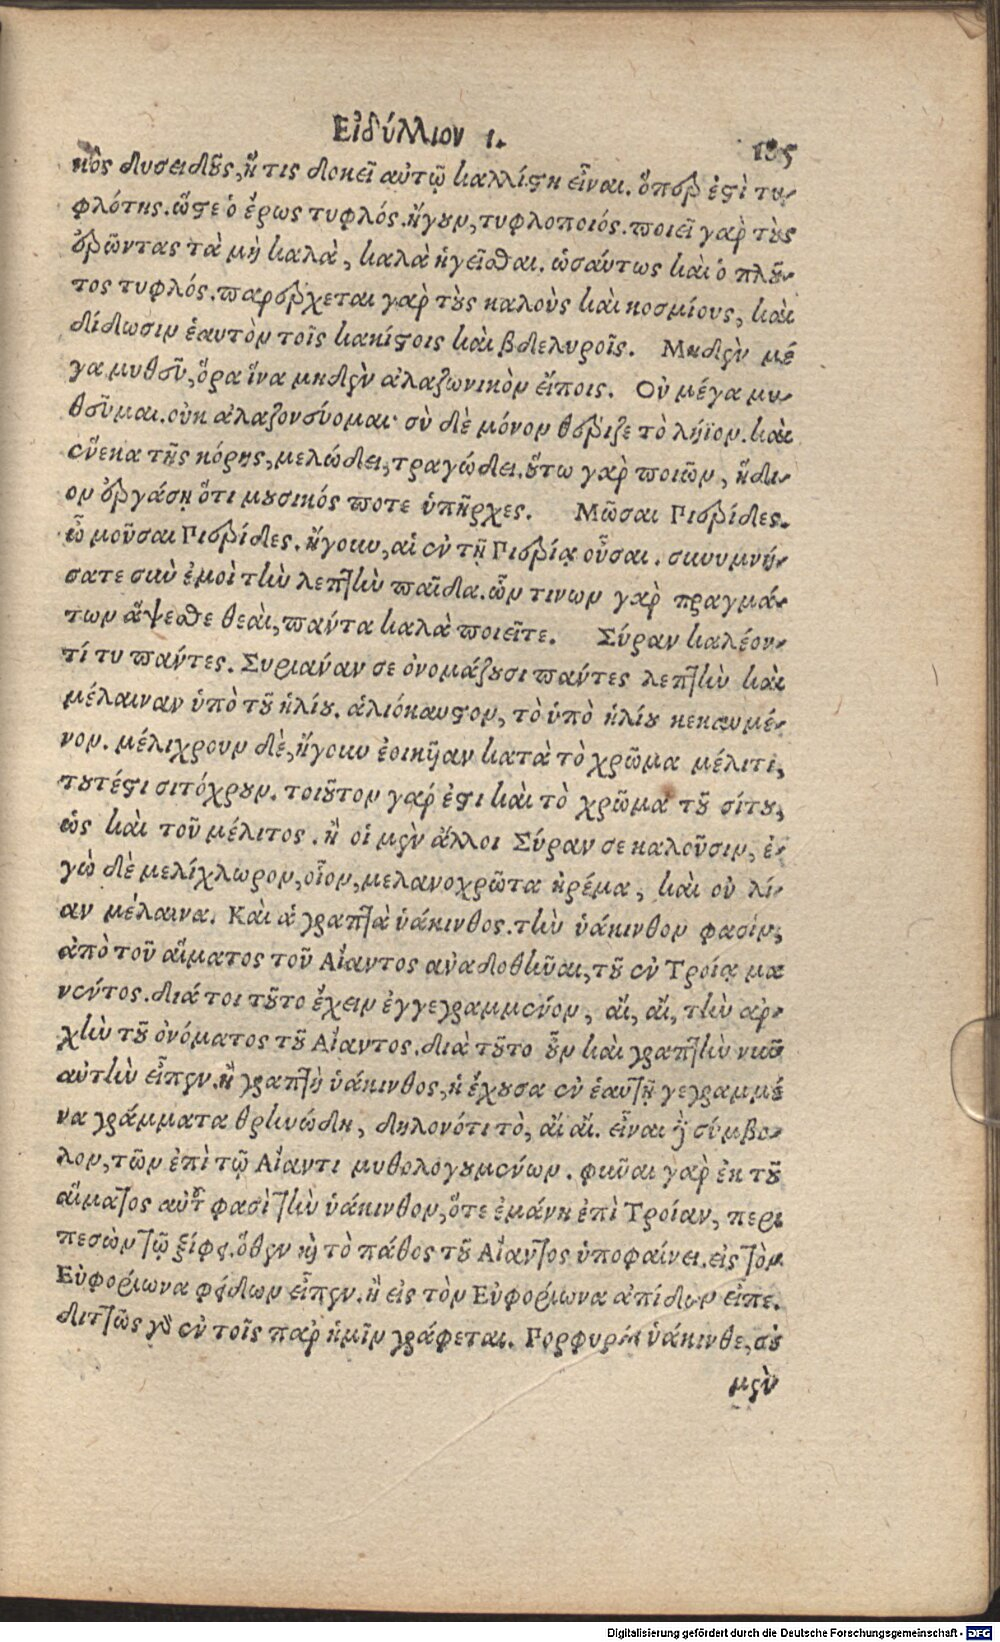 Εἰδύλλιον ι. 195
κὸς δυσειδοῦς, ἥ τις δοκεῖ αὐτῷ καλλίστη εἶναι. ὅπερ ἐστὶ τυ-
φλότης. ὥστε ὁ ἔρως τυφλός. ἤγουν, τυφλοποιός. ποιεῖ γὰρ τοὺς
ἐρῶντας τὰ μὴ καλὰ, καλὰ ἡγεῖσθαι. ὡσαύτως καὶ ὁ πλοῦ-
τος τυφλός. παρέρχεται γὰρ τοὺς καλοὺς καὶ κοσμίους, καὶ
δίδωσιν ἑαυτὸν τοῖς κακίστοις καὶ βδελυροῖς. Μηδὲν μέ
γα μυθοῦ, ὅρα ἵνα μηδὲν ἀλαζωνικὸν εἴποις. Οὐ μέγα μυ-
θεῦμαι. οὐκ ἀλαζονεύομαι· σὺ δὲ μόνον θέριζε τὸ λήϊον. καὶ
ἕνεκα τῆς κόρης, μελῴδει, τραγῴδει. οὕτω γὰρ ποιῶν, ἥδι-
ον ἐργάσῃ ὅτι μουσικός ποτε ὑπῆρχες. Μῶσαι Πιερίδες.
ὦ μοῦσαι Πιερίδες. ἤγουν, αἱ ἐν τῇ Πιερίᾳ οὖσαι. συνυμνή-
σατε σὺν ἐμοὶ τὴν λεπτὴν παῖδα. ὧν τινων γὰρ πραγμά-
των ἅψεσθε θεαὶ, πάντα καλὰ ποιεῖτε. Σύραν καλέον-
τί τυ πάντες. Συριαναν σε ὀνομάζουσι πάντες λεπτὴν καὶ
μέλαιναν ὑπὸ τοῦ ἡλίου. ἁλιόκαυστον, τὸ ὑπὸ ἡλίου κεκαυμέ-
νον. μέλιχρουν δὲ, ἤγουν ἐοικῆαν κατὰ τὸ χρῶμα μέλιτι,
τουτέστι σιτόχρουν. τοιοῦτον γάρ ἐστι καὶ τὸ χρῶμα τοῦ σίτου,
ὡς καὶ τοῦ μέλιτος. ἢ οἱ μὲν ἄλλοι Σύραν σε καλοῦσιν, ἐ-
γὼ δὲ μελίχλωρον, οἷον, μελανοχρῶτα ἠρέμα, καὶ οὐ λί-
αν μέλαινα. Καὶ ἁ γραπτὰ ὑάκινθος. τὴν ὑάκινθον φασὶν,
ἀπὸ τοῦ αἵματος τοῦ Αἴαντος ἀναδοθῆναι, τοῦ ἐν Τροίᾳ μα
νέντος. διά τοι τοῦτο ἔχειν ἐγγεγραμμένον, αἴ, αἴ, τὴν ἀρ-
χὴν τοῦ ὀνόματος τοῦ Αἴαντος. διὰ τοῦτο οὖν καὶ γραπτὴν νῦν
αὐτὴν εἶπεν. ἢ γραπτὴ ὑάκινθος, ἡ ἔχουσα ἐν ἑαυτῇ γεγραμμέ
να γράμματα θρηνώδη, δηλονότι τὸ, αἴ αἴ. εἶναι γὰρ σύμβο-
λον, τῶν ἐπὶ τῷ Αἴαντι μυθολογουμένων. φῦναι γὰρ ἐκ τοῦ
αἵματος αὐτοῦ φασὶ τὴν ὑάκινθον, ὅτε ἐμάνη ἐπὶ Τροίαν, περι
πεσὼν τῷ ξίφει. ὅθεν καὶ τὸ πάθος τοῦ Αἴαντος ὑποφαίνει. εἰς τὸν
Εὐφορίωνα φείδων εἶπεν. ἢ εἰς τὸν Εὐφορίωνα ἀπίδων εἶπε.
διττῶς γὰρ ἐν τοῖς παρ ἡμῖν γράφεται. Πορφυρέα ὑάκινθε, σὲ
μὲν
Digitalisierung gefördert durch die Deutsche Forschungsgemeinschaft - DFG